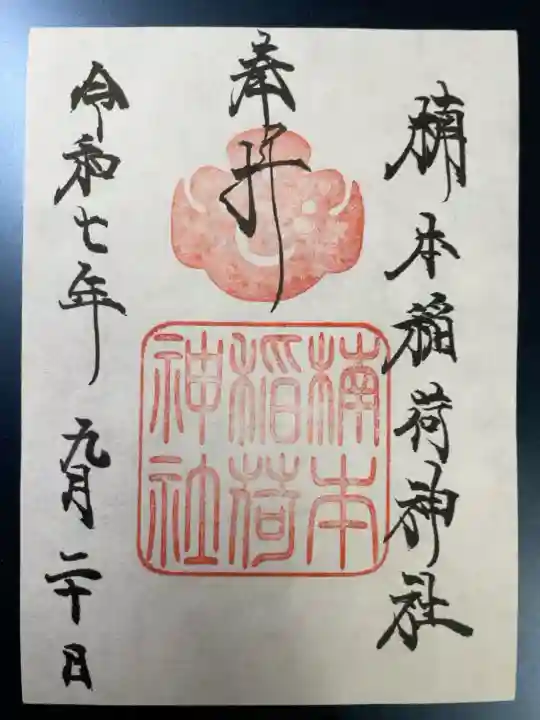 楠本稲荷神社
奉拝
楠本
稲荷
神社
令和七年九月二十日